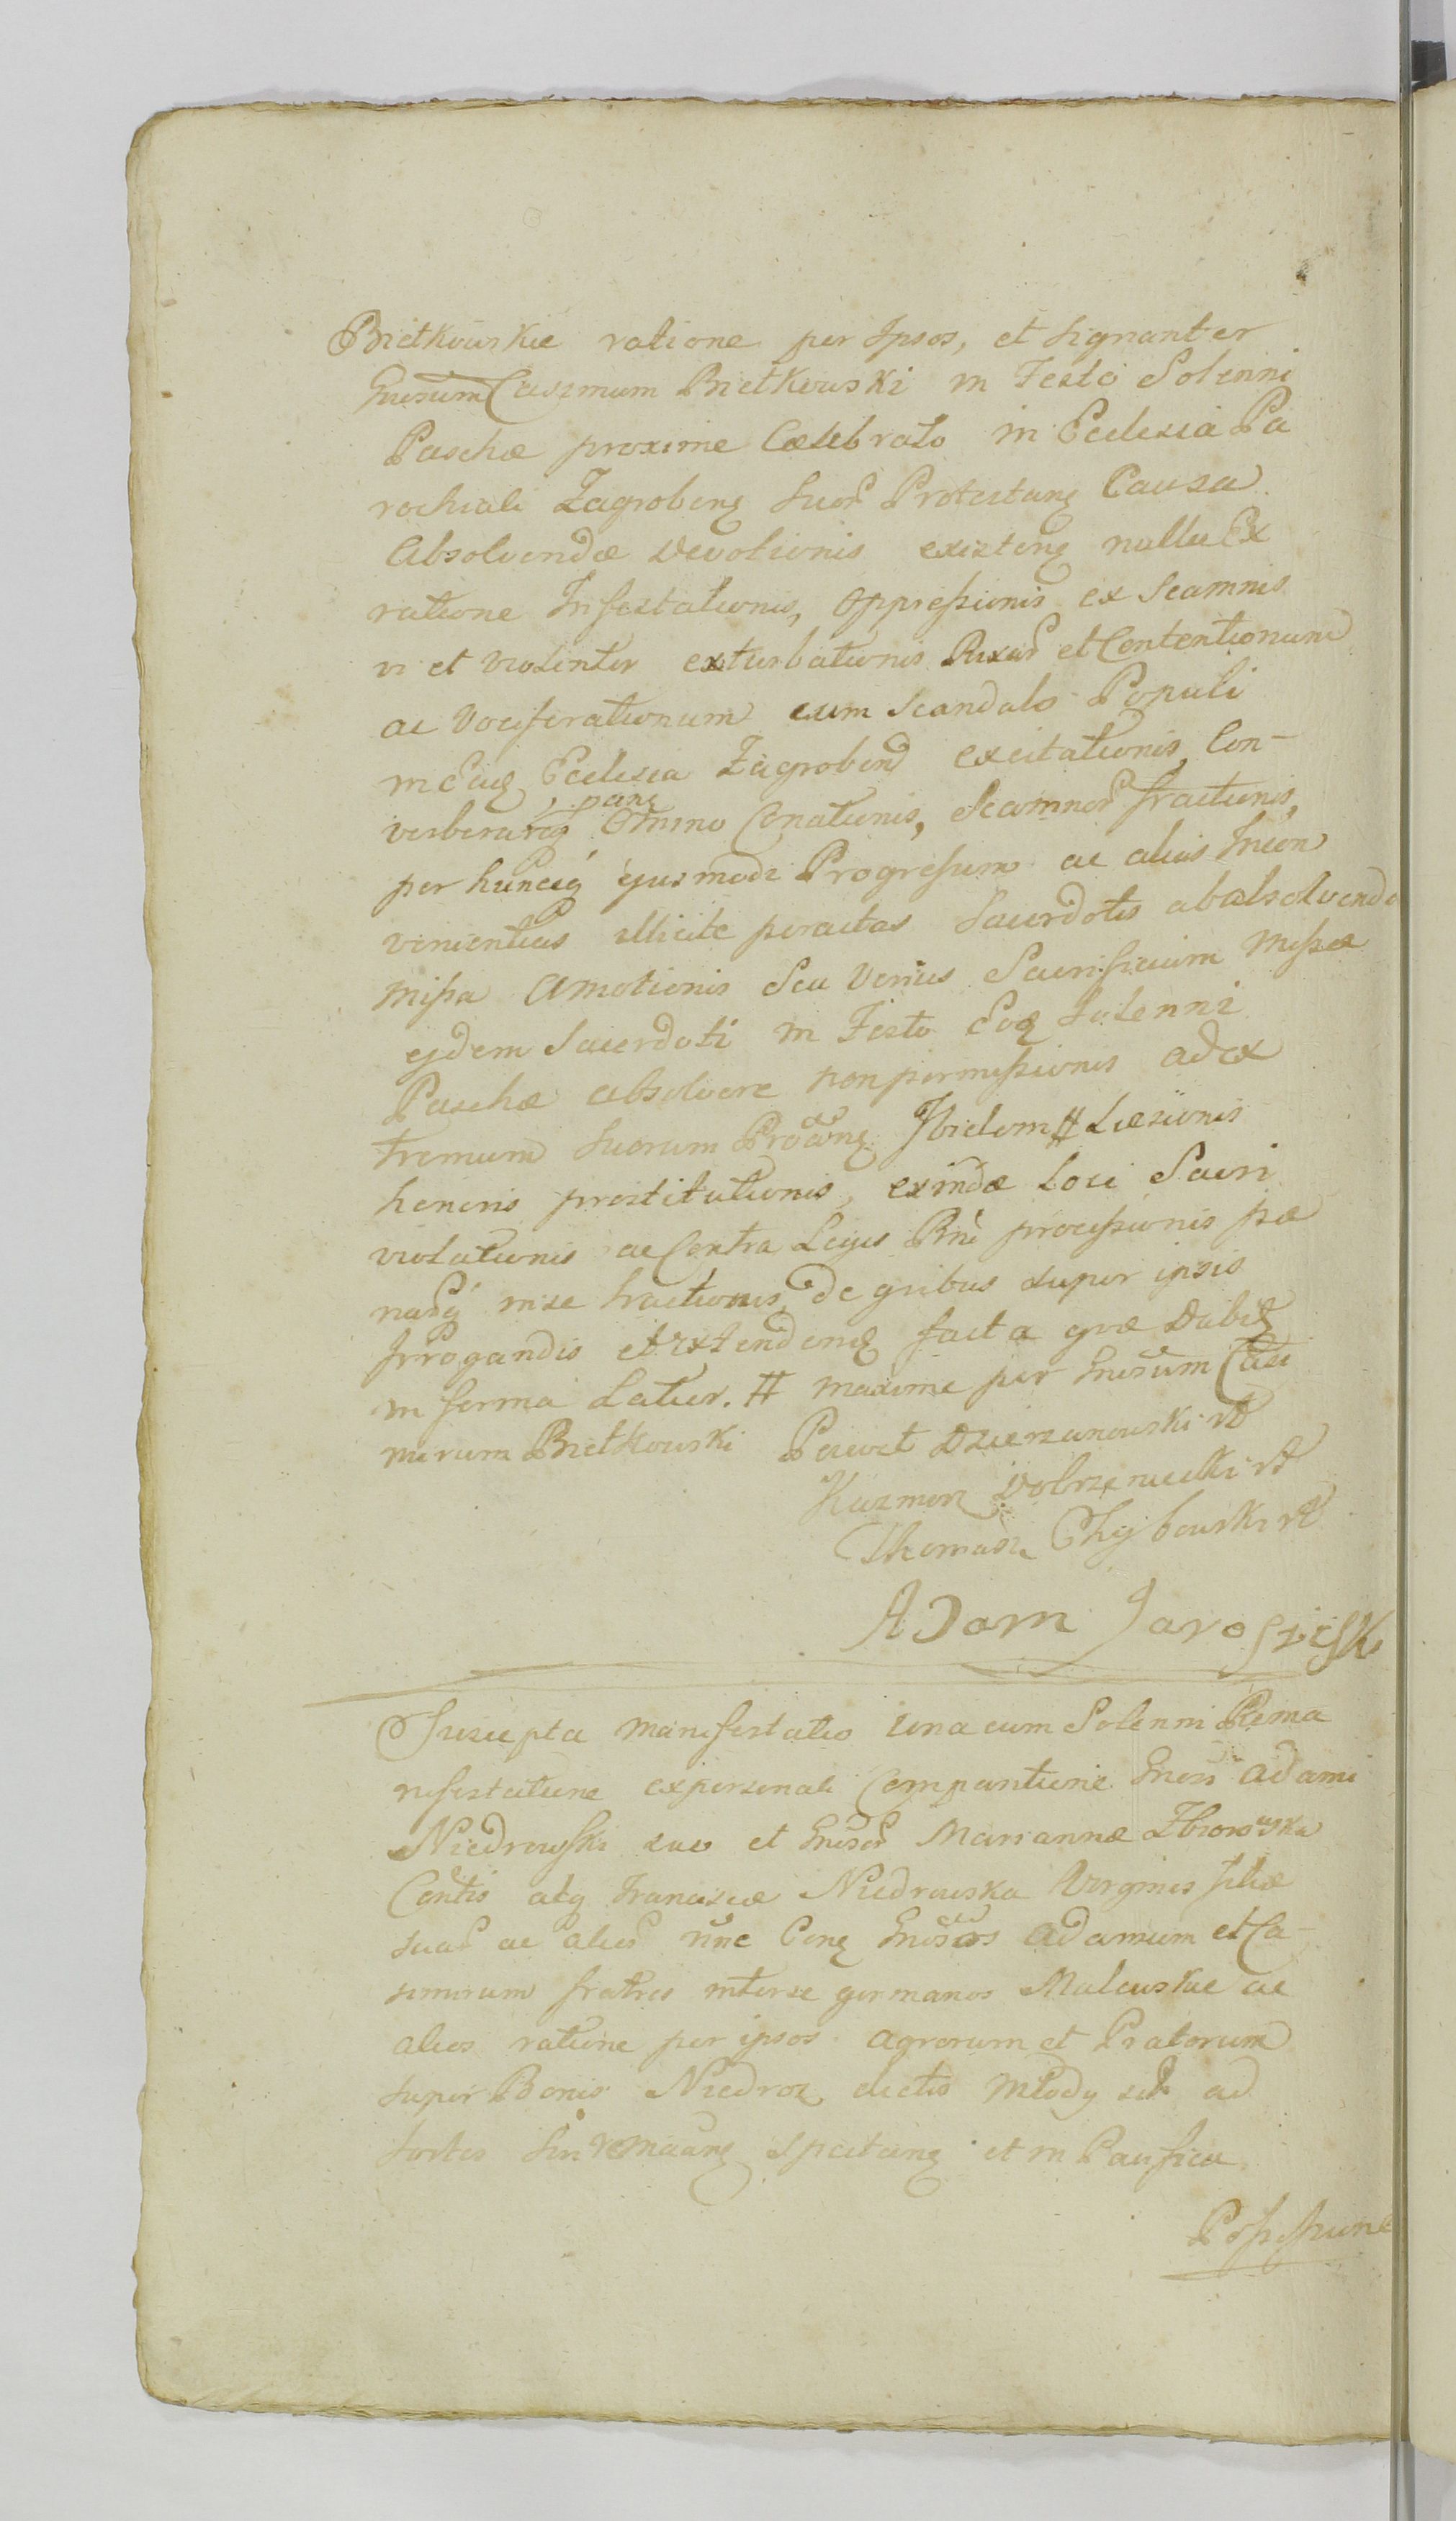 Bietkowskie ratione per Ipsos, et signanter
Gnosum Casimirum Bietkowski in Festo Solenni
Paschæ proxime Cælebrato in Ecclesia Pa
rochiali Zagroben Suor Protestan Causa
Absolvendæ Devotionis existen nulla Ex
ratione Infestationis, Oppressionis ex Scamnis
vi et violenter exturbationis Rixar et Contentionum
ac Vociferationum cum Scandalo Populi
in Eaq Ecclesia Zagroben excitationis, Con-
verberaõq pene Omino Conationis, Scamnor fractionis,
per huncq ejusmodi Progressum ac alias Incon
venientias illicite peractas Sacerdotis ab absolvenda
Missa Amotionis Seu Verius Sacrificium Missæ
ejdem Sacerdoti in Festo Eoq Solenni
Paschæ absolvere non permissionis ad ex
tremum Suorum Ibidem # Læsionis
honoris prostitutionis, exindæ Loci Sacri
violationis ac Contra Leges Rni processionis pæ
narq in se tractionis, de quibus super ipsis
Irrogandis et extenden facta qræ Dabit
in forma Latior. # maxime per Gnosum Casi
mirum Bietkowski Paweł Dzierzanowski
Kazimirz
Thomasz Chybowski
Adam Jaroszesk
Suscepta Manifestatio una cum Solenni Rema
nifestatione ex personali Comparitione Gnosi Adami
Niedrowski suo et Gnosor Mariannæ Zbiorowska
Contis atq Franciscæ Niedrowska Virginis filiæ
suar ac alior nne Con Gnosos Adamum et Ca-
simirum fratres inter se germanos Malewskie ac
alios ratione per ipsos Agrorum et Pratorum
super Bonis Niedroz dictis Młody ad
sortes spectan et in Pacifica
Possessione